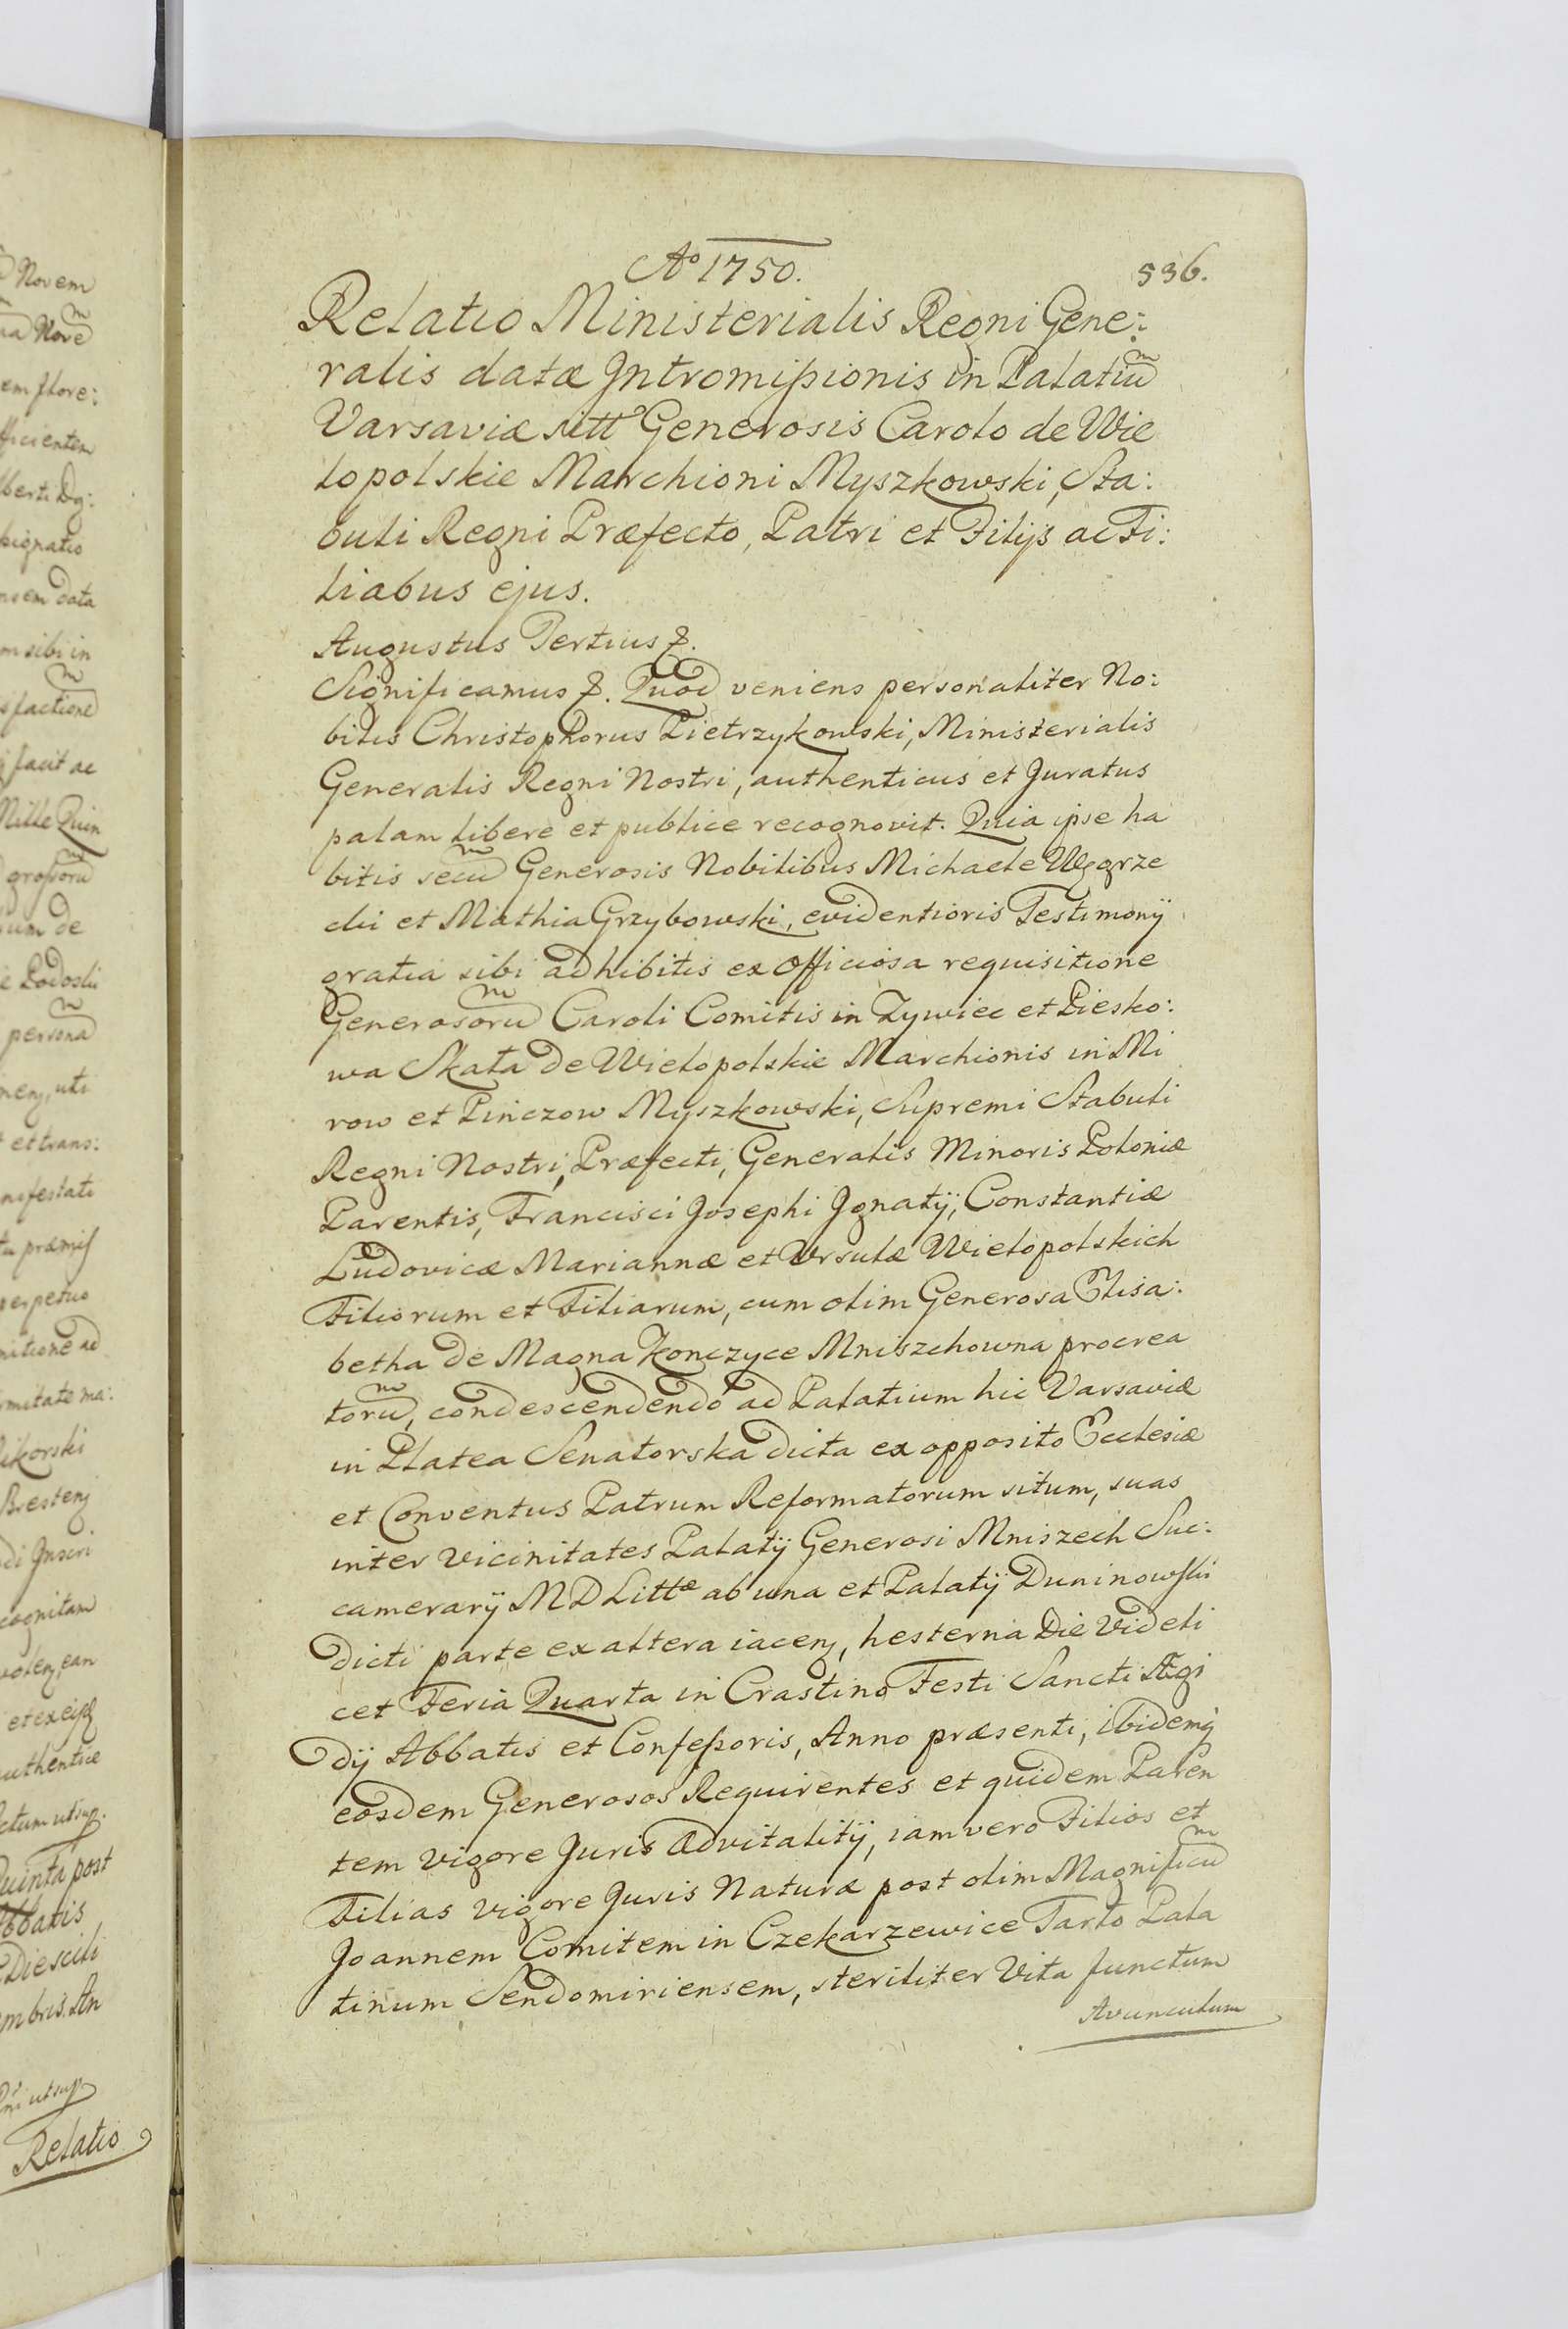 Novem
na Novem
em flore:
fficientem
lberti Dg:
signatio
nsem data
m sibi in
sfactione
facit ac
Mille Quin
grossoru
um de
e Podoski
persona
menz, uti
et trans:
nifestati
ta præmiss
perpetuo
nitione ad
rmitate ma:
ikorski
Bresteng
di Inscri
cognitam
volenz, ean
et ex eisd
authentice
ctum ut sup.
Quinta post
Abbatis
Die scili
mbris An
ut sup
Relatio
Aº 1750.
536.
Relatio Ministerialis Regni Gene:
ralis datæ Intromissionis in Palatiũ
Varsaviæ sitt̃ Generosis Carolo de Wie
lopolskie Marchioni Myszkowski, Sta:
buli Regni Præfecto, Patri et Filijs ac Fi:
liabus ejus.
Augustus Tertius &.
Significamus &. Quod veniens personaliter No:
bilis Christophorus Pietrzykowski, Ministerialis
Generalis Regni Nostri, authenticus et Juratus
palam libere et publice recognovit. Quia ipse ha
bitis secũ Generosis Nobilibus Michaele Węgrze
cki et Mathia Grzybowski, evidentioris Testimonÿ
gratia sibi adhibitis ex officiosa requisitione
Generosorũ Caroli Comitis in Zywiec et Piesko:
wa Skała de Wielopolskie Marchionis in Mi
row et Pińczow Myszkowski, Supremi Stabuli
Regni Nostri, Præfecti, Generalis Minoris Poloniæ
Parentis, Francisci Josephi Ignatÿ, Constantiæ
Ludovicæ Mariannæ et Ursulæ Wielopolskich
Filiorum et Filiarum, cum olim Generosa Elisa:
betha de Magna Konczyce Mniszchowna procrea
torũ, condescendendo ad Palatium hic Varsaviæ
in Platea Senatorska dicta ex opposito Ecclesiæ
et Conventus Patrum Reformatorum situm, suas
inter vicinitates Palatÿ Generosi Mniszech Suc:
camerarÿ M D Littæ ab una et Palatÿ Duninowski
dicti parte ex altera iacenz, hesterna Die Videli
cet Feria Quarta in Crastino Festi Sancti Ægi
dÿ Abbatis et Confessoris, Anno præsenti, ibidemq̃
eosdem Generosos Requirentes et quidem Paren
tem vigore Juris Advitalitÿ, iam vero Filios et
Filias vigore Juris Naturæ post olim Magnificũ
Joannem Comitem in Czekarzewice Tarło Pala
tinum Sendomiriensem, steriliter Vita functum
Avunculum